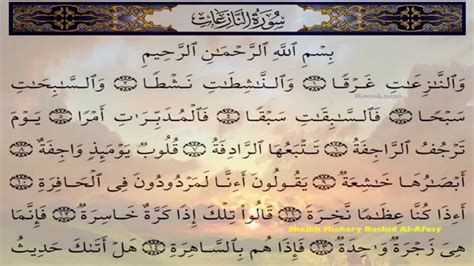 سُورَةُ النَّازِعَاتِ
بِسْمِ اللَّهِ الرَّحْمَٰنِ الرَّحِيمِ
وَالنَّازِعَاتِ غَرْقًا ۝١ وَالنَّاشِطَاتِ نَشْطًا ۝٢ وَالسَّابِحَاتِ
سَبْحًا ۝٣ فَالسَّابِقَاتِ سَبْقًا ۝٤ فَالْمُدَبِّرَاتِ أَمْرًا ۝٥ يَوْمَ
تَرْجُفُ الرَّاجِفَةُ ۝٦ تَتْبَعُهَا الرَّادِفَةُ ۝٧ قُلُوبٌ يَوْمَئِذٍ وَاجِفَةٌ ۝٨
أَبْصَارُهَا خَاشِعَةٌ ۝٩ يَقُولُونَ أَءِنَّا لَمَرْدُودُونَ فِي الْحَافِرَةِ ۝١٠
أَءِذَا كُنَّا عِظَامًا نَّخِرَةً ۝١١ قَالُوا تِلْكَ إِذًا كَرَّةٌ خَاسِرَةٌ ۝١٢ فَإِنَّمَا
Sheikh Mishary Rashid Al-Afasy
هِيَ زَجْرَةٌ وَاحِدَةٌ ۝١٣ فَإِذَا هُم بِالسَّاهِرَةِ ۝١٤ هَلْ أَتَاكَ حَدِيثُ